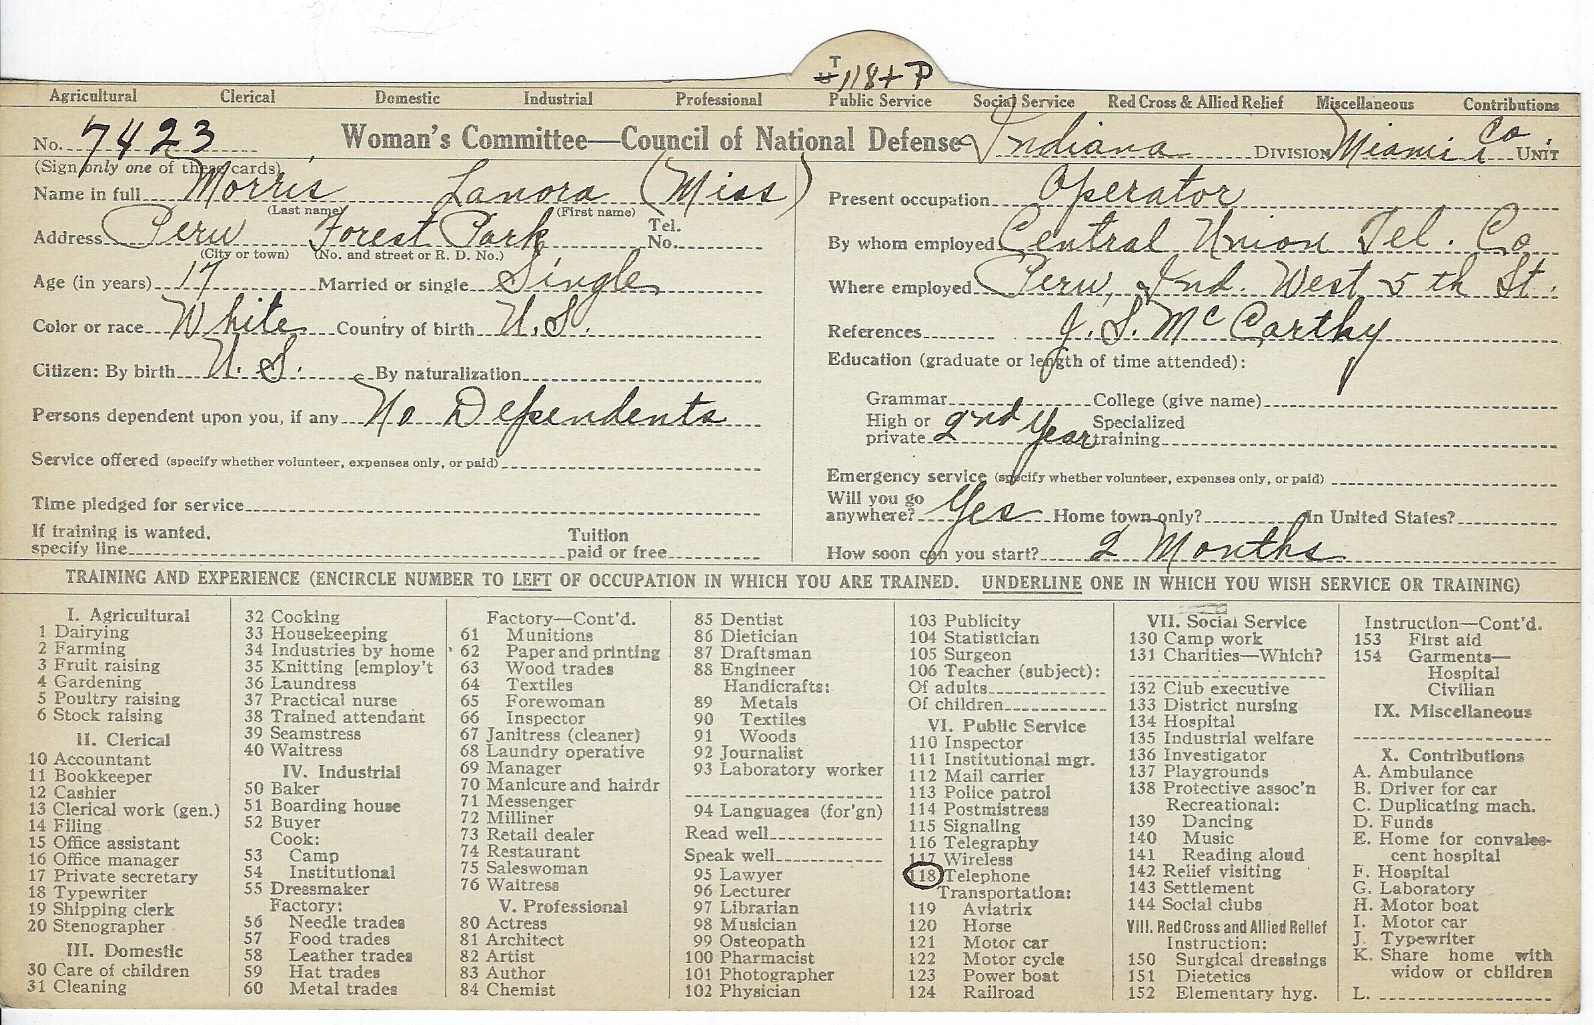 T
118 + P
Agricultural Clerical Domestic Industrial Professional Public Service Social Service Red Cross & Allied Relief Miscellaneous Contributions
No. 7423 Woman's Committee—Council of National Defense Indiana DIVISION Miami Co. UNIT
(Sign only one of these cards)
Name in full Morris Lanora (Miss)
(Last name) (First name)
Address Peru Forest Park Tel. No.
(City or town) (No. and street or R. D. No.)
Age (in years) 17 Married or single Single
Color or race White Country of birth U.S.
Citizen: By birth U. S. By naturalization
Persons dependent upon you, if any No Dependents
Service offered (specify whether volunteer, expenses only, or paid)
Time pledged for service
If training is wanted, Tuition
specify line paid or free
Present occupation Operator
By whom employed Central Union Tel. Co
Where employed Peru, Ind. West 5th St.
References J. S. McCarthy
Education (graduate or length of time attended):
Grammar College (give name)
High or private 2nd Year Specialized training
Emergency service (specify whether volunteer, expenses only, or paid)
Will you go anywhere? Yes Home town only? In United States?
How soon can you start? 2 Months
TRAINING AND EXPERIENCE (ENCIRCLE NUMBER TO LEFT OF OCCUPATION IN WHICH YOU ARE TRAINED. UNDERLINE ONE IN WHICH YOU WISH SERVICE OR TRAINING)
I. Agricultural
1 Dairying
2 Farming
3 Fruit raising
4 Gardening
5 Poultry raising
6 Stock raising
II. Clerical
10 Accountant
11 Bookkeeper
12 Cashier
13 Clerical work (gen.)
14 Filing
15 Office assistant
16 Office manager
17 Private secretary
18 Typewriter
19 Shipping clerk
20 Stenographer
III. Domestic
30 Care of children
31 Cleaning
32 Cooking
33 Housekeeping
34 Industries by home
35 Knitting [employ't
36 Laundress
37 Practical nurse
38 Trained attendant
39 Seamstress
40 Waitress
IV. Industrial
50 Baker
51 Boarding house
52 Buyer
Cook:
53 Camp
54 Institutional
55 Dressmaker
Factory:
56 Needle trades
57 Food trades
58 Leather trades
59 Hat trades
60 Metal trades
Factory—Cont'd.
61 Munitions
62 Paper and printing
63 Wood trades
64 Textiles
65 Forewoman
66 Inspector
67 Janitress (cleaner)
68 Laundry operative
69 Manager
70 Manicure and hairdr
71 Messenger
72 Milliner
73 Retail dealer
74 Restaurant
75 Saleswoman
76 Waitress
V. Professional
80 Actress
81 Architect
82 Artist
83 Author
84 Chemist
85 Dentist
86 Dietician
87 Draftsman
88 Engineer
Handicrafts:
89 Metals
90 Textiles
91 Woods
92 Journalist
93 Laboratory worker
94 Languages (for'gn)
Read well
Speak well
95 Lawyer
96 Lecturer
97 Librarian
98 Musician
99 Osteopath
100 Pharmacist
101 Photographer
102 Physician
103 Publicity
104 Statistician
105 Surgeon
106 Teacher (subject):
Of adults
Of children
VI. Public Service
110 Inspector
111 Institutional mgr.
112 Mail carrier
113 Police patrol
114 Postmistress
115 Signaling
116 Telegraphy
117 Wireless
118 Telephone
Transportation:
119 Aviatrix
120 Horse
121 Motor car
122 Motor cycle
123 Power boat
124 Railroad
VII. Social Service
130 Camp work
131 Charities—Which?
132 Club executive
133 District nursing
134 Hospital
135 Industrial welfare
136 Investigator
137 Playgrounds
138 Protective assoc'n
Recreational:
139 Dancing
140 Music
141 Reading aloud
142 Relief visiting
143 Settlement
144 Social clubs
VIII. Red Cross and Allied Relief
Instruction:
150 Surgical dressings
151 Dietetics
152 Elementary hyg.
Instruction—Cont'd.
153 First aid
154 Garments—
Hospital
Civilian
IX. Miscellaneous
X. Contributions
A. Ambulance
B. Driver for car
C. Duplicating mach.
D. Funds
E. Home for convales-
cent hospital
F. Hospital
G. Laboratory
H. Motor boat
I. Motor car
J. Typewriter
K. Share home with
widow or children
L.